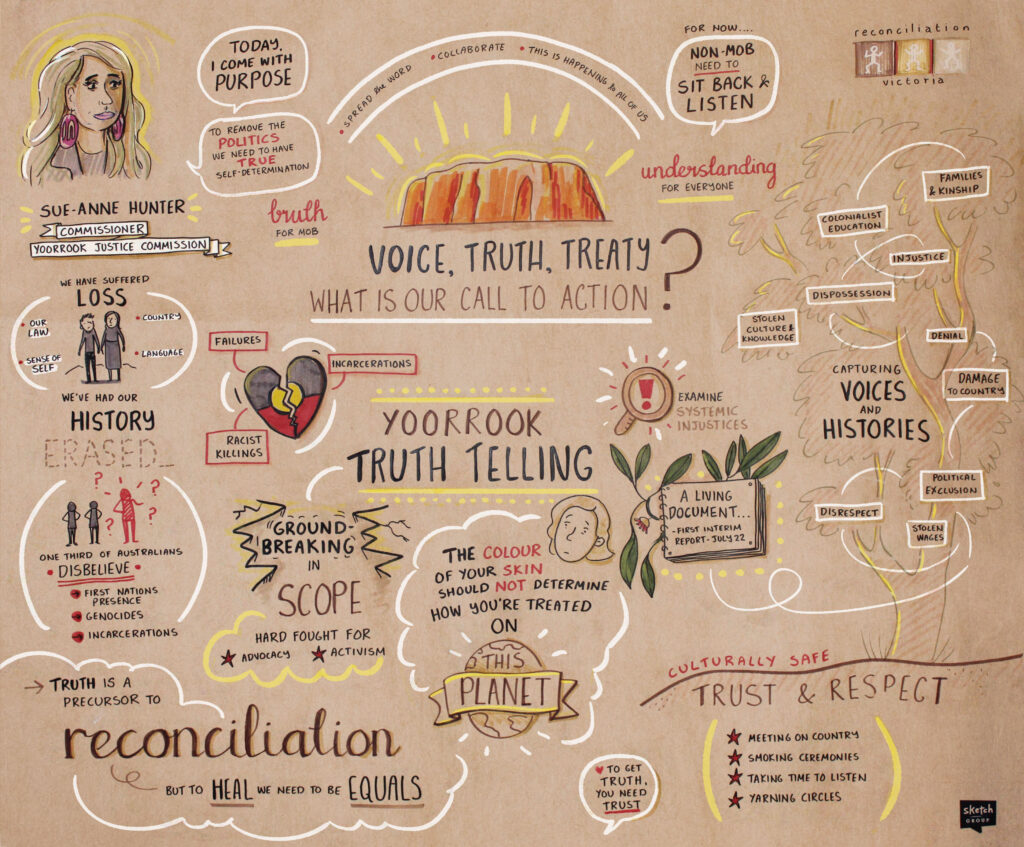 TODAY,
I COME WITH
PURPOSE
TO REMOVE THE
POLITICS
WE NEED TO HAVE
TRUE
SELF-DETERMINATION
SUE-ANNE HUNTER
COMMISSIONER
YOORROOK JUSTICE COMMISSION
• SPREAD the WORD • COLLABORATE • THIS IS HAPPENING to ALL OF US
FOR NOW....
NON-MOB
NEED TO
SIT BACK &
LISTEN
reconciliation
victoria
truth
FOR MOB
understanding
FOR EVERYONE
VOICE, TRUTH, TREATY
WHAT IS OUR CALL TO ACTION?
WE HAVE SUFFERED
LOSS
• OUR
LAW
• COUNTRY
• SENSE OF
SELF
• LANGUAGE
WE'VE HAD OUR
HISTORY
ERASED_
? ? ? ?
ONE THIRD OF AUSTRALIANS
• DISBELIEVE •
FIRST NATIONS
PRESENCE
GENOCIDES
INCARCERATIONS
FAILURES
INCARCERATIONS
RACIST
KILLINGS
YOORROOK
TRUTH TELLING
GROUND-
BREAKING
IN
SCOPE
HARD FOUGHT FOR
★ ADVOCACY ★ ACTIVISM
THE COLOUR
OF YOUR SKIN
SHOULD NOT DETERMINE
HOW YOU'RE TREATED
ON
THIS
PLANET
!
EXAMINE
SYSTEMIC
INJUSTICES
A LIVING
DOCUMENT...
-FIRST INTERIM
REPORT - JULY 22
FAMILIES
& KINSHIP
COLONIALIST
EDUCATION
INJUSTICE
DISPOSSESSION
STOLEN
CULTURE &
KNOWLEDGE
DENIAL
CAPTURING
VOICES
AND
HISTORIES
DAMAGE
TO COUNTRY
POLITICAL
EXCLUSION
DISRESPECT
STOLEN
WAGES
→ TRUTH IS A
PRECURSOR TO
reconciliation
BUT TO HEAL WE NEED TO BE EQUALS
♥ TO GET
TRUTH,
YOU NEED
TRUST
CULTURALLY SAFE
TRUST & RESPECT
★ MEETING ON COUNTRY
★ SMOKING CEREMONIES
★ TAKING TIME TO LISTEN
★ YARNING CIRCLES
sketch
GROUP